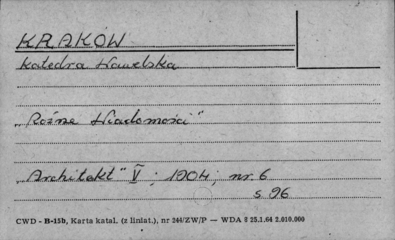 KRAKÓW
Katedra Wawelska
„Rożne Wiadomości"
„Architekt" V ; 1904, nr. 6
s 96
CWD - B-15b, Karta katal. (z liniat.), nr 244/ZW/P — WDA 8 25.1.64 2.010.000